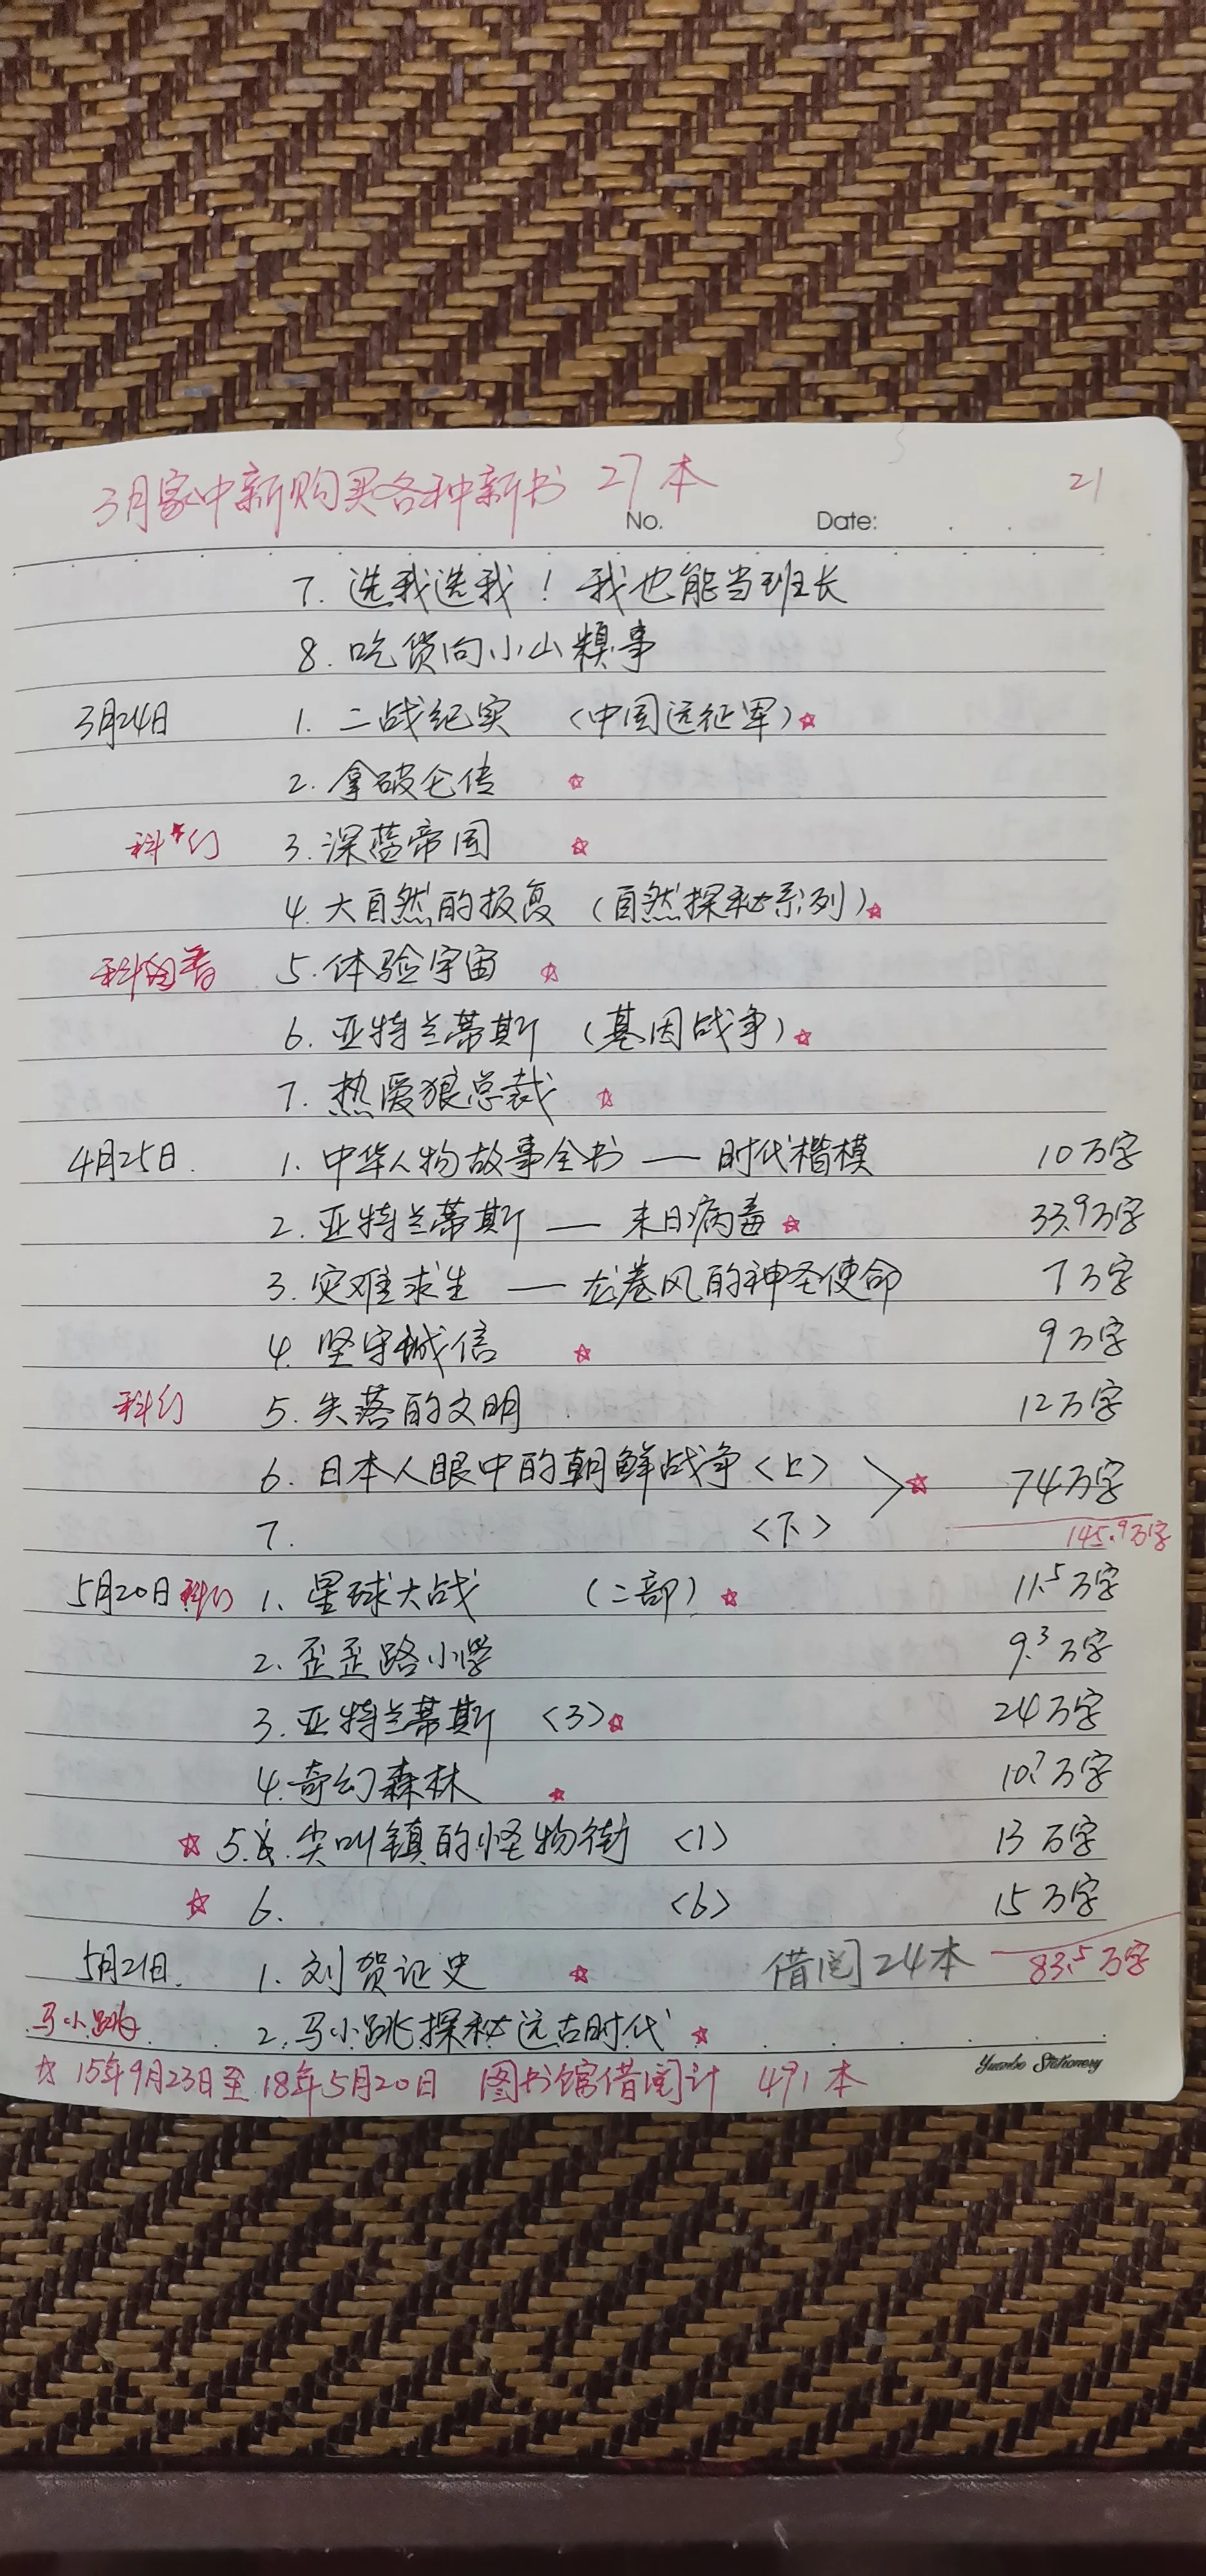 3月家中新购买各种新书 27本
21
No. Date:
7. 选我选我！我也能当班长
8. 吃货向小山糗事
3月24日 1. 二战纪实 （中国远征军）☆
2. 拿破仑传 ☆
科幻 3. 深蓝帝国 ☆
4. 大自然的报复 （自然探秘系列）☆
科普 5. 体验宇宙 ☆
6. 亚特兰蒂斯 （基因战争）☆
7. 热爱狼总裁 ☆
4月25日. 1. 中华人物故事全书 — 时代楷模 10万字
2. 亚特兰蒂斯 — 末日病毒 ☆ 33.9万字
3. 灾难求生 — 龙卷风的神圣使命 7万字
4. 坚守诚信 ☆ 9万字
科幻 5. 失落的文明 12万字
6. 日本人眼中的朝鲜战争〈上〉 ☆ 74万字
7. 〈下〉
145.9万字
5月20日 科幻 1. 星球大战 （二部）☆ 11.5万字
2. 歪歪路小学 9.3万字
3. 亚特兰蒂斯 〈3〉☆ 24万字
4. 奇幻森林 ☆ 10.7万字
☆ 5. 尖叫镇的怪物街 〈1〉 13万字
☆ 6. 〈6〉 15万字
5月21日. 1. 刘贺证史 ☆ 借阅24本 83.5万字
马小跳 2. 马小跳探秘远古时代 ☆
☆ 15年9月23日至18年5月20日 图书馆借阅计 491本
Yuanbo Stationery